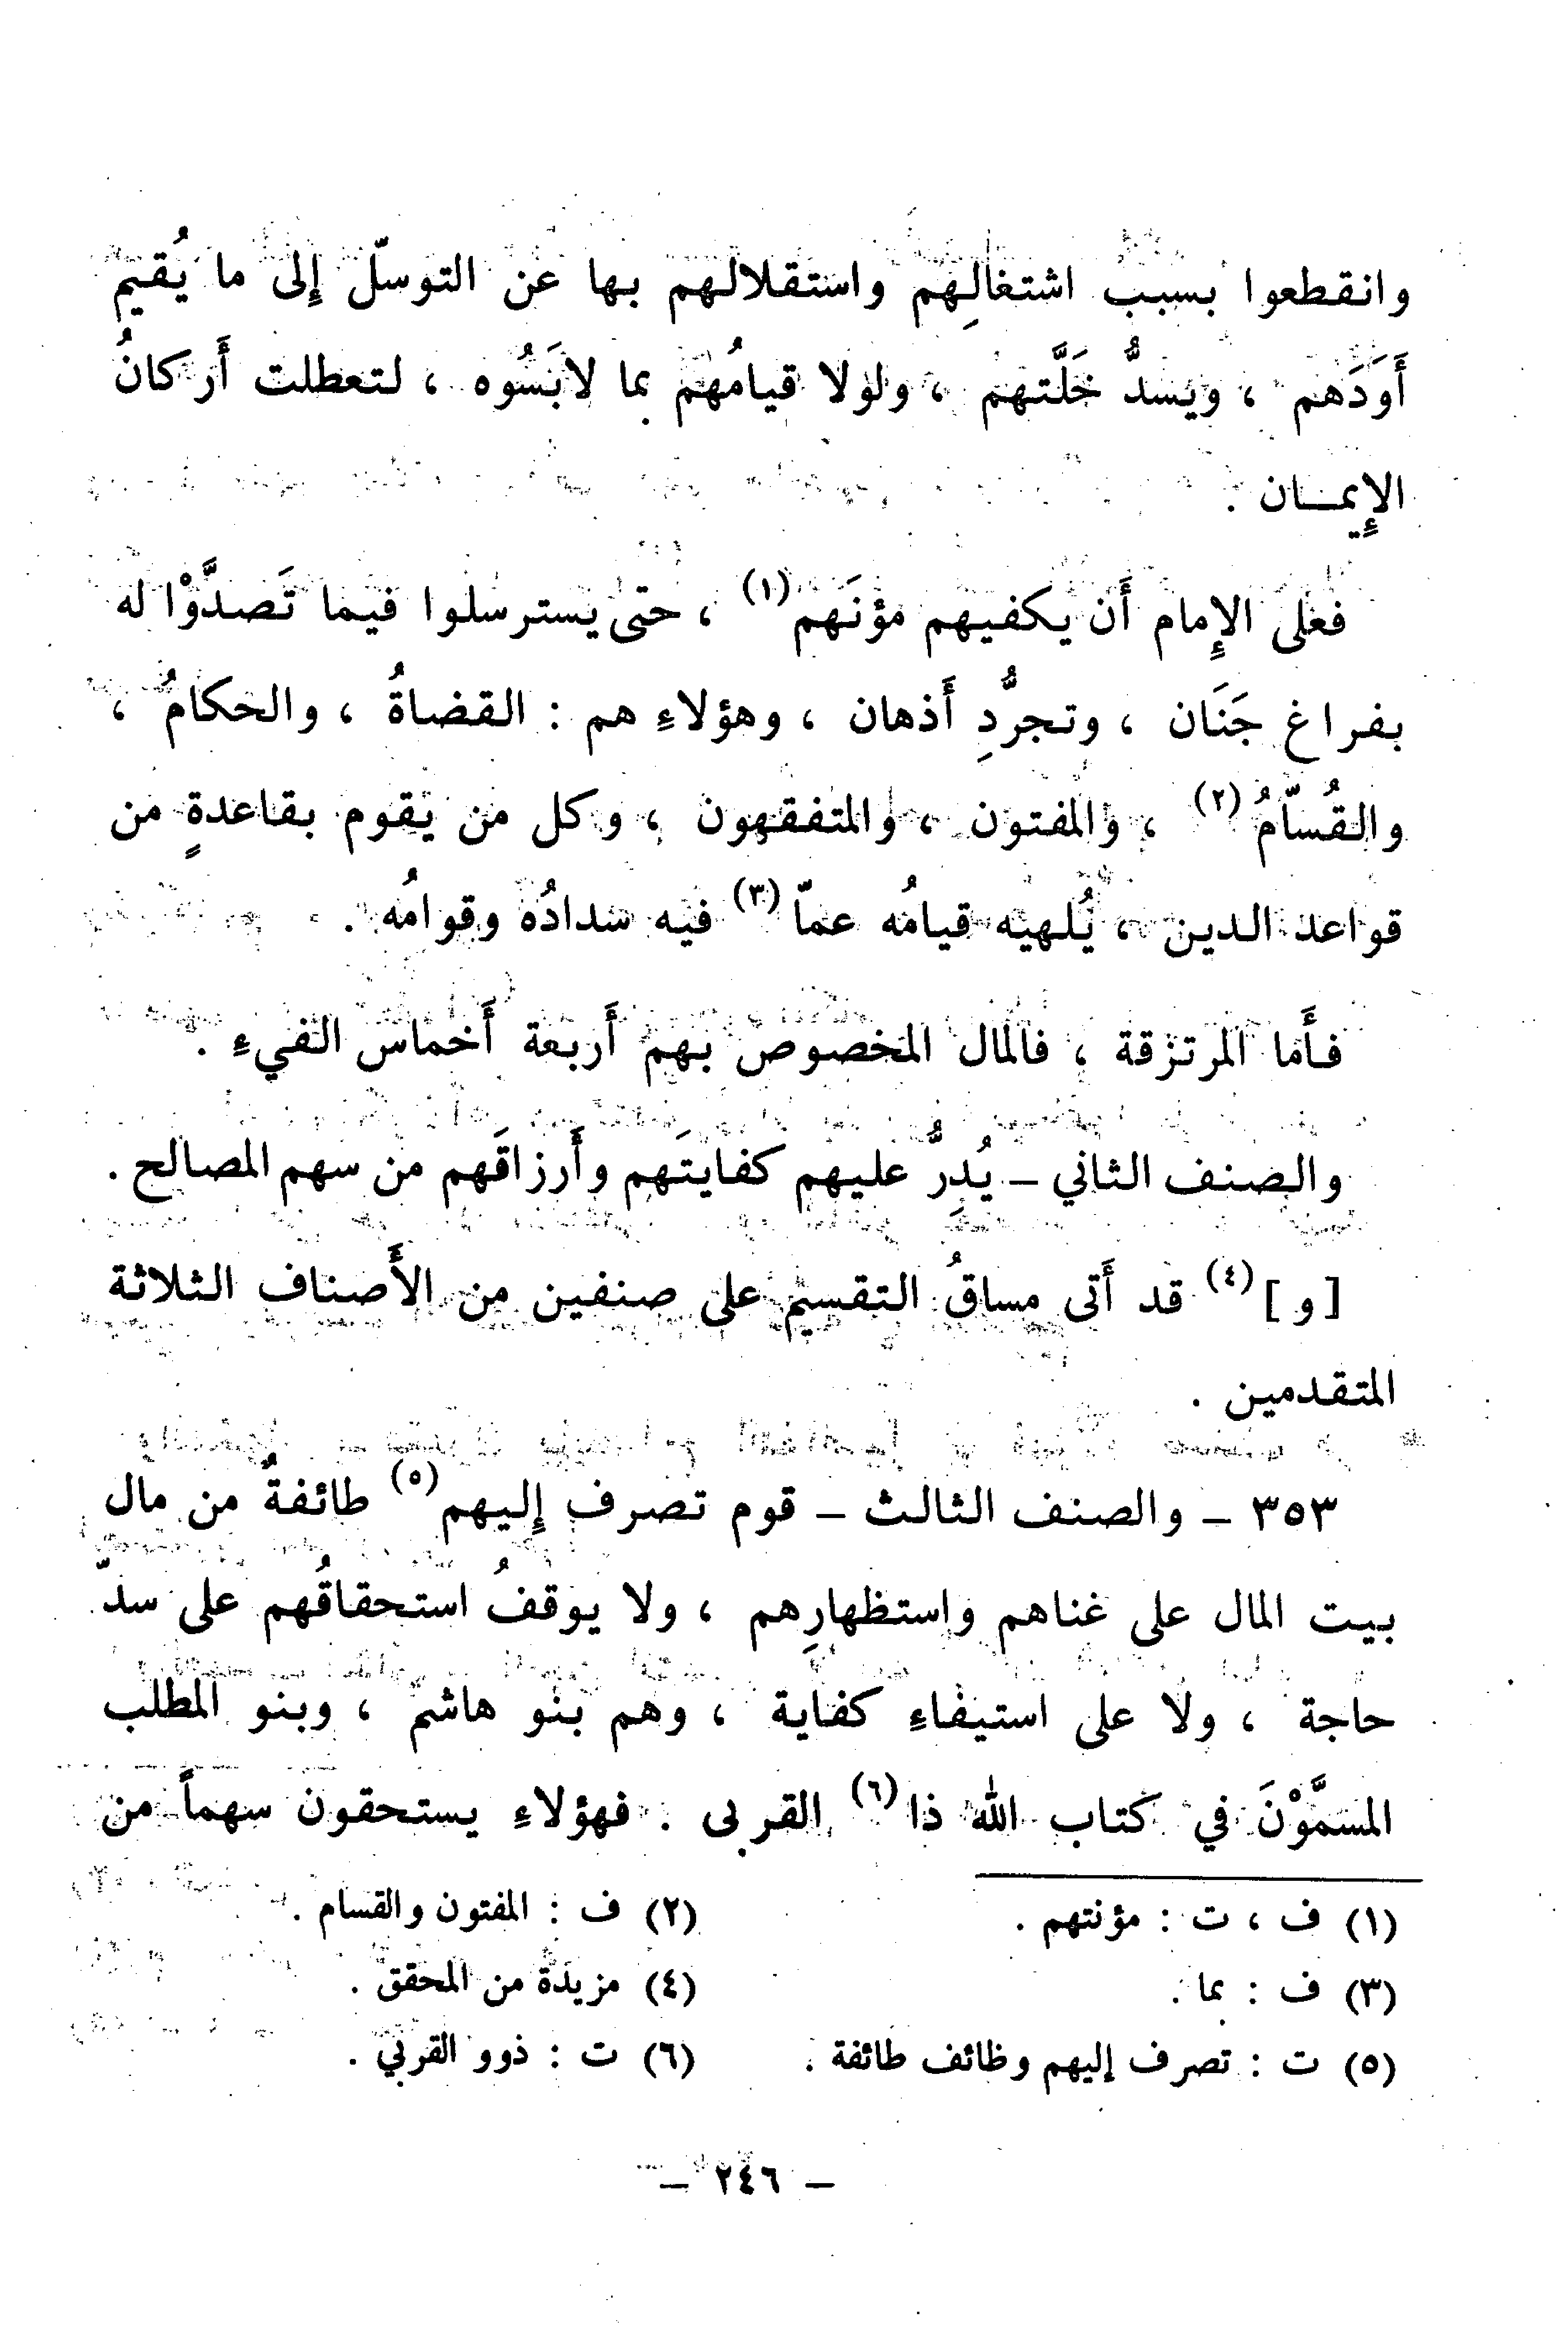 وانقطعوا بسبب اشتغالِهم واستقلالهم بها عن التوسّل إلى ما يُقيم
أَوَدَهم ، ويسدُّ خَلَّتهم ، ولولا قيامُهم بما لابَسُوه ، لتعطلت أَركانُ
الإِيمــان .
فعلى الإِمام أَن يكفيهم مؤنَهم(١) ، حتى يسترسلوا فيما تَصدَّوْا له
بفراغ جَنَان ، وتجرُّدِ أَذهان ، وهؤلاءِ هم : القضاةُ ، والحكامُ ،
والقُسّامُ(٢) ، والمفتون ، والمتفقهون ، وكل من يقوم بقاعدةٍ من
قواعد الدين ، يُلهيه قيامُه عمّا(٣) فيه سدادُه وقوامُه .
فأَما المرتزقة ، فالمال المخصوص بهم أَربعة أَخماس الفيءِ .
والصنف الثاني – يُدِرُّ عليهم كفايتَهم وأَرزاقَهم من سهم المصالح .
[ و ](٤) قد أَتى مساقُ التقسيم على صنفين من الأَصناف الثلاثة
المتقدمين .
٣٥٣ – والصنف الثالث – قوم تصرف إِليهم(٥) طائفةٌ من مال
بيت المال على غناهم واستظهارِهم ، ولا يوقفُ استحقاقُهم على سدّ
حاجة ، ولا على استيفاءِ كفاية ، وهم بنو هاشم ، وبنو المطلب
المسمَّوْنَ في كتاب الله ذا(٦) القربى . فهؤلاءِ يستحقون سهماً من
(١) ف ، ت : مؤنتهم .
(٢) ف : المفتون والقسام .
(٣) ف : بما .
(٤) مزيدة من المحقق .
(٥) ت : تصرف إليهم وظائف طائفة .
(٦) ت : ذوو القربي .
– ٢٤٦ –